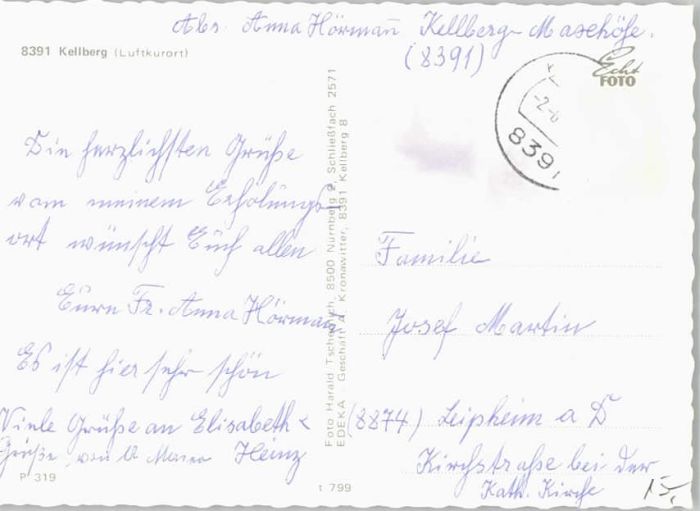 Abs. Anna Hörmann Kellberg-Masehöfe.
(8391)
8391 Kellberg (Luftkurort)
Echt
FOTO
-2.-8
8391
Die herzlichsten Grüße
vom meinem Erhölungs-
ort wünscht Euch allen
Eurn Fr. Anna Hörmann
Es ist hier sehr schön
Viele Grüße an Elisabeth &
Grüße von Heinz
P 319
Foto Harald 8500 Nürnberg 2, Schließfach 2571
EDEKA - Geschäft A. Kronawitter, 8391 Kellberg 8
t 799
Familie
Josef Martin
(8874) Leipheim a D
Kirchstraße bei der
Kath. Kirche